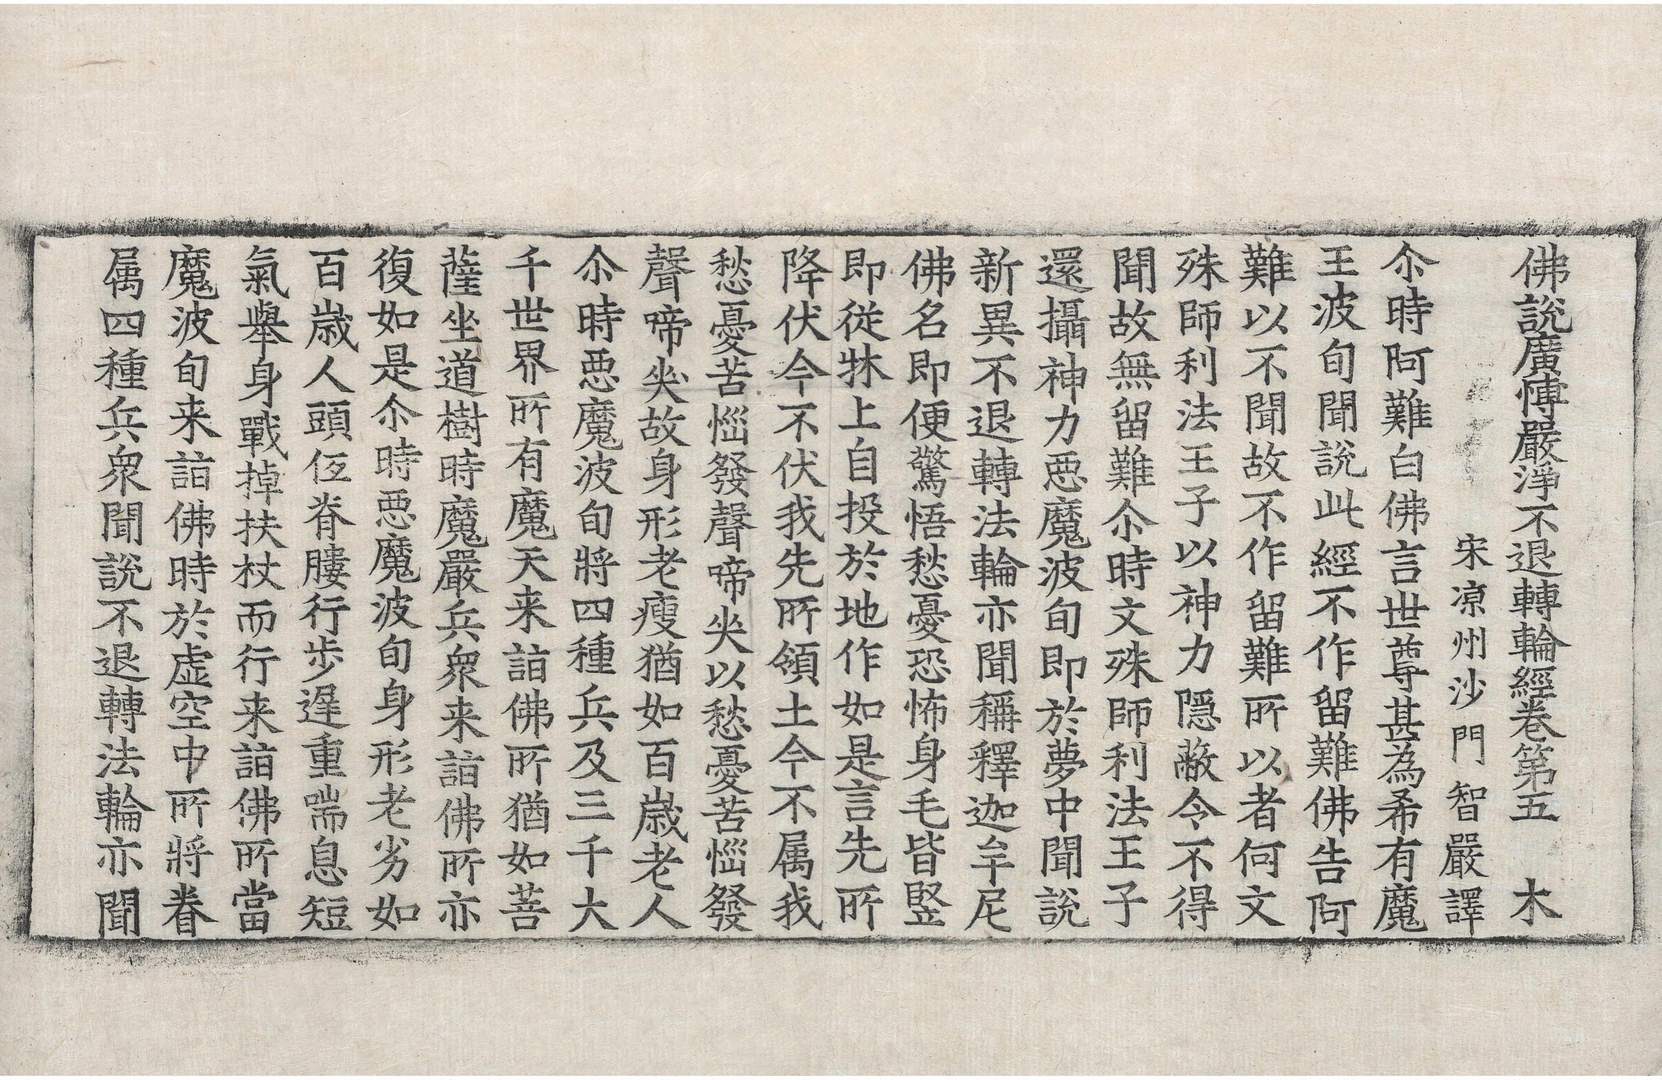 佛說廣愽嚴淨不退轉輪經卷第五　木
宋凉州沙門智嚴譯
尒時阿難白佛言世尊甚為希有魔
王波旬聞說此經不作留難佛告阿
難以不聞故不作留難所以者何文
殊師利法王子以神力隱蔽令不得
聞故無留難尒時文殊師利法王子
還攝神力惡魔波旬即於夢中聞說
新異不退轉法輪亦聞稱釋迦牟尼
佛名即便驚悟愁憂恐怖身毛皆竪
即從牀上自投於地作如是言先所
降伏今不伏我先所領土今不属我
愁憂苦惱發聲啼哭以愁憂苦惱發
聲啼哭故身形老瘦猶如百歲老人
尒時惡魔波旬將四種兵及三千大
千世界所有魔天来詣佛所猶如菩
薩坐道樹時魔嚴兵衆来詣佛所亦
復如是尒時惡魔波旬身形老劣如
百歲人頭伭脊膢行步遲重喘息短
氣舉身戰掉扶杖而行来詣佛所當
魔波旬来詣佛時於虛空中所將眷
属四種兵衆聞說不退轉法輪亦聞